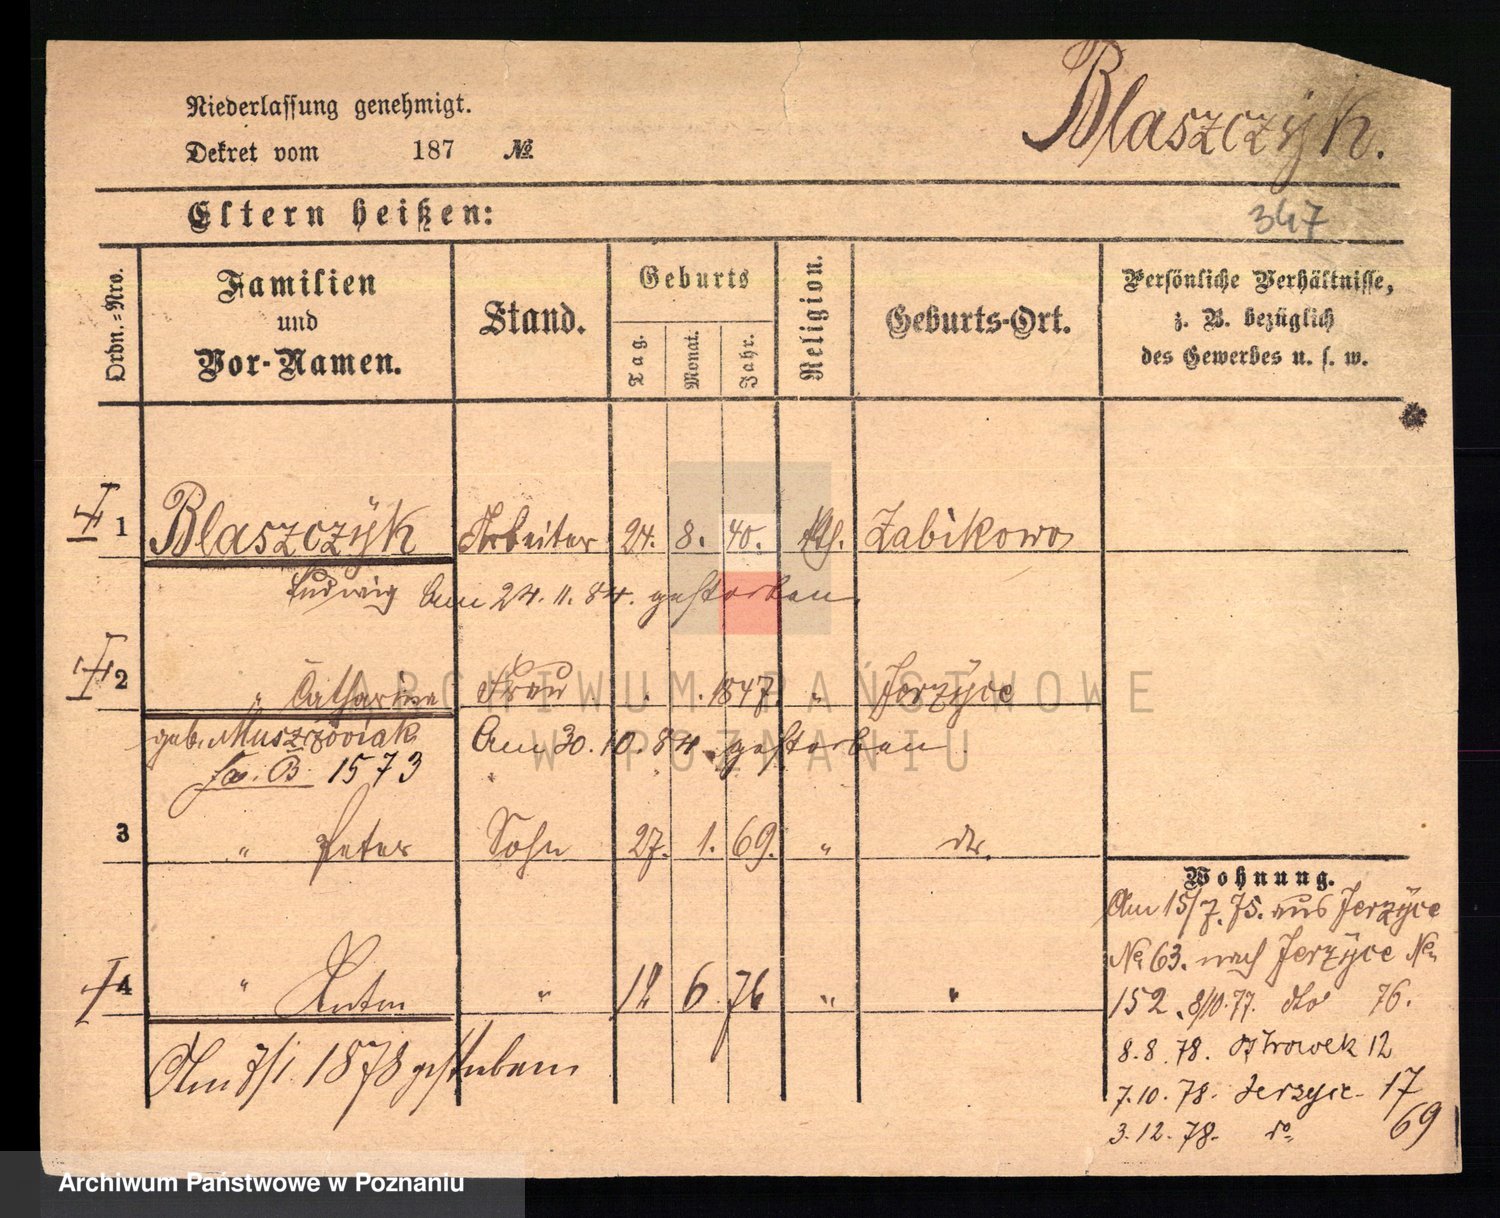 Niederlassung genehmigt.
Dekret vom 187 №
Blaszczÿk.
Eltern heißen:
347
Ordn.-Nro.
Familien und Vor-Namen.
Stand.
Geburts
Tag.
Monat.
Jahr.
Religion.
Geburts-Ort.
Persönliche Verhältnisse,
z. B. bezüglich
des Gewerbes u. s. w.
1 Blaszczÿk Arbeiter 24. 8. 40. kth. Zabikowo
Ludwig Am 24. 11. 84. gestorben
2 " Catharina Frau . . 1847 " Jerzÿce
geb. Muszÿoviak Am 30. 10. 84. gestorben.
B. 1573
3 " Peter Sohn 27. 1. 69. " do.
4 " Anton " 12 6. 76 " "
Am 7/1. 1878 gestorben
Wohnung.
Am 15/7. 75. aus Jerzÿce
No 63. nach Jerzÿce No
152. 8/10. 77. dto 76.
8. 8. 78. Ostrowek 12
7. 10. 78. Jerzyce 17
3. 12. 78. do 69
ARCHIWUM PAŃSTWOWE
W POZNANIU
Archiwum Państwowe w Poznaniu